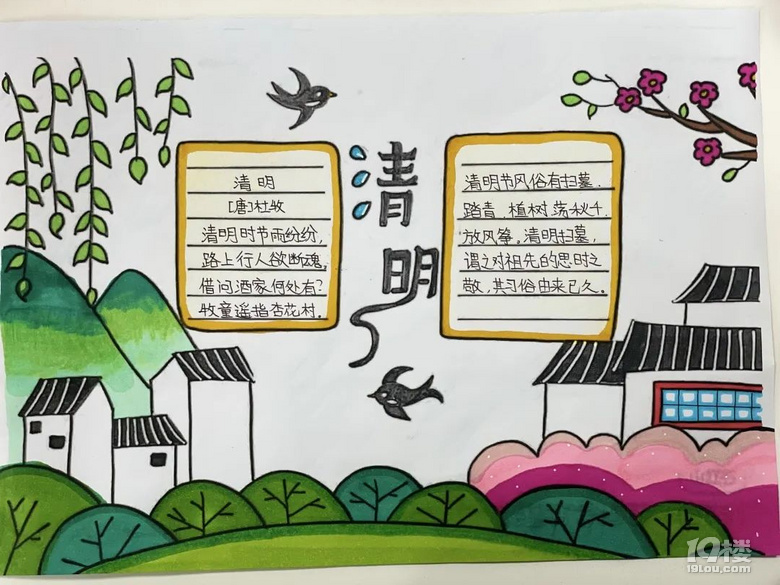 清明
清明
[唐]杜牧
清明时节雨纷纷,
路上行人欲断魂,
借问酒家何处有?
牧童遥指杏花村.
清明节风俗有扫墓.
踏青.植树荡秋千.
放风筝,清明扫墓,
谓之对祖先的思时之
敬.其习俗由来已久.
19楼
19lou.com